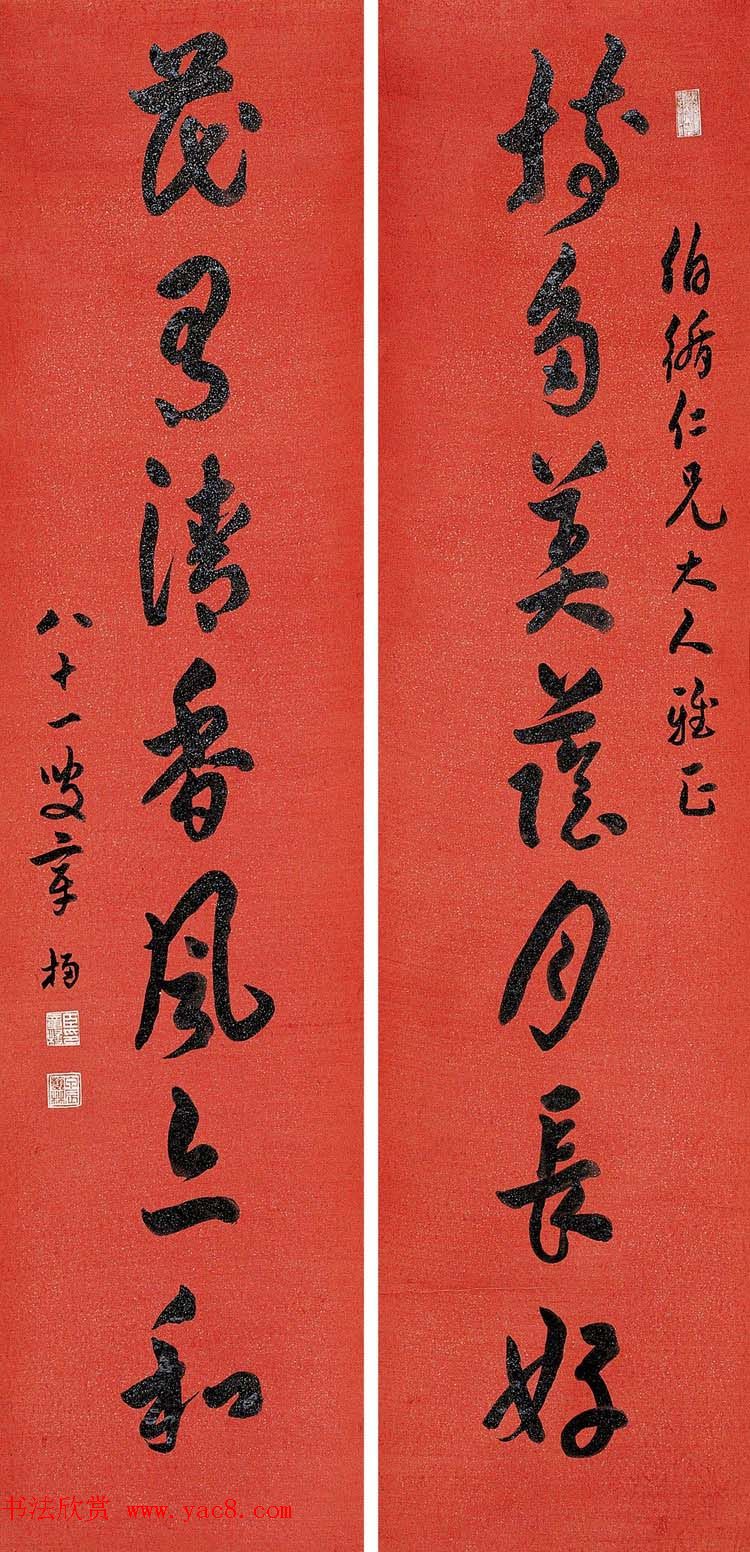 伯循仁兄大人雅正
樹多美蔭月長好
花有清香風和
八十一叟章
书法欣赏 www.yac8.com